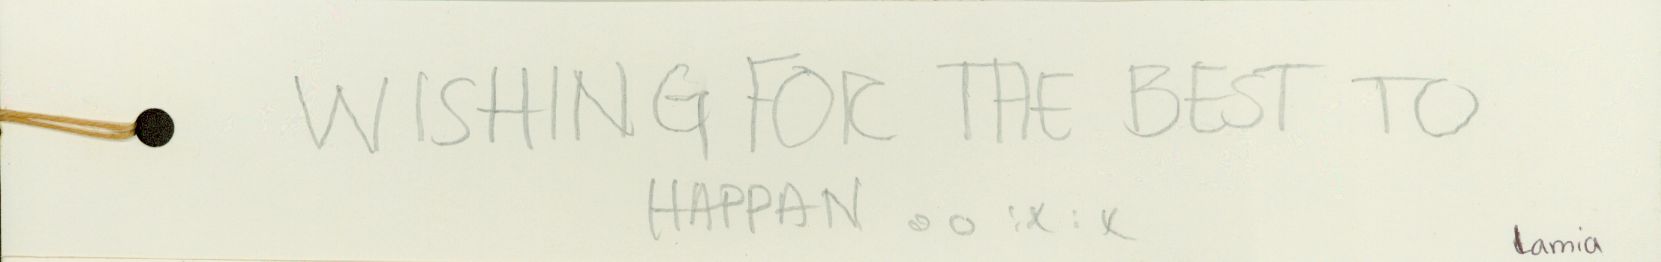 WISHING FOR THE BEST TO
HAPPAN .. :x:x
Lamia